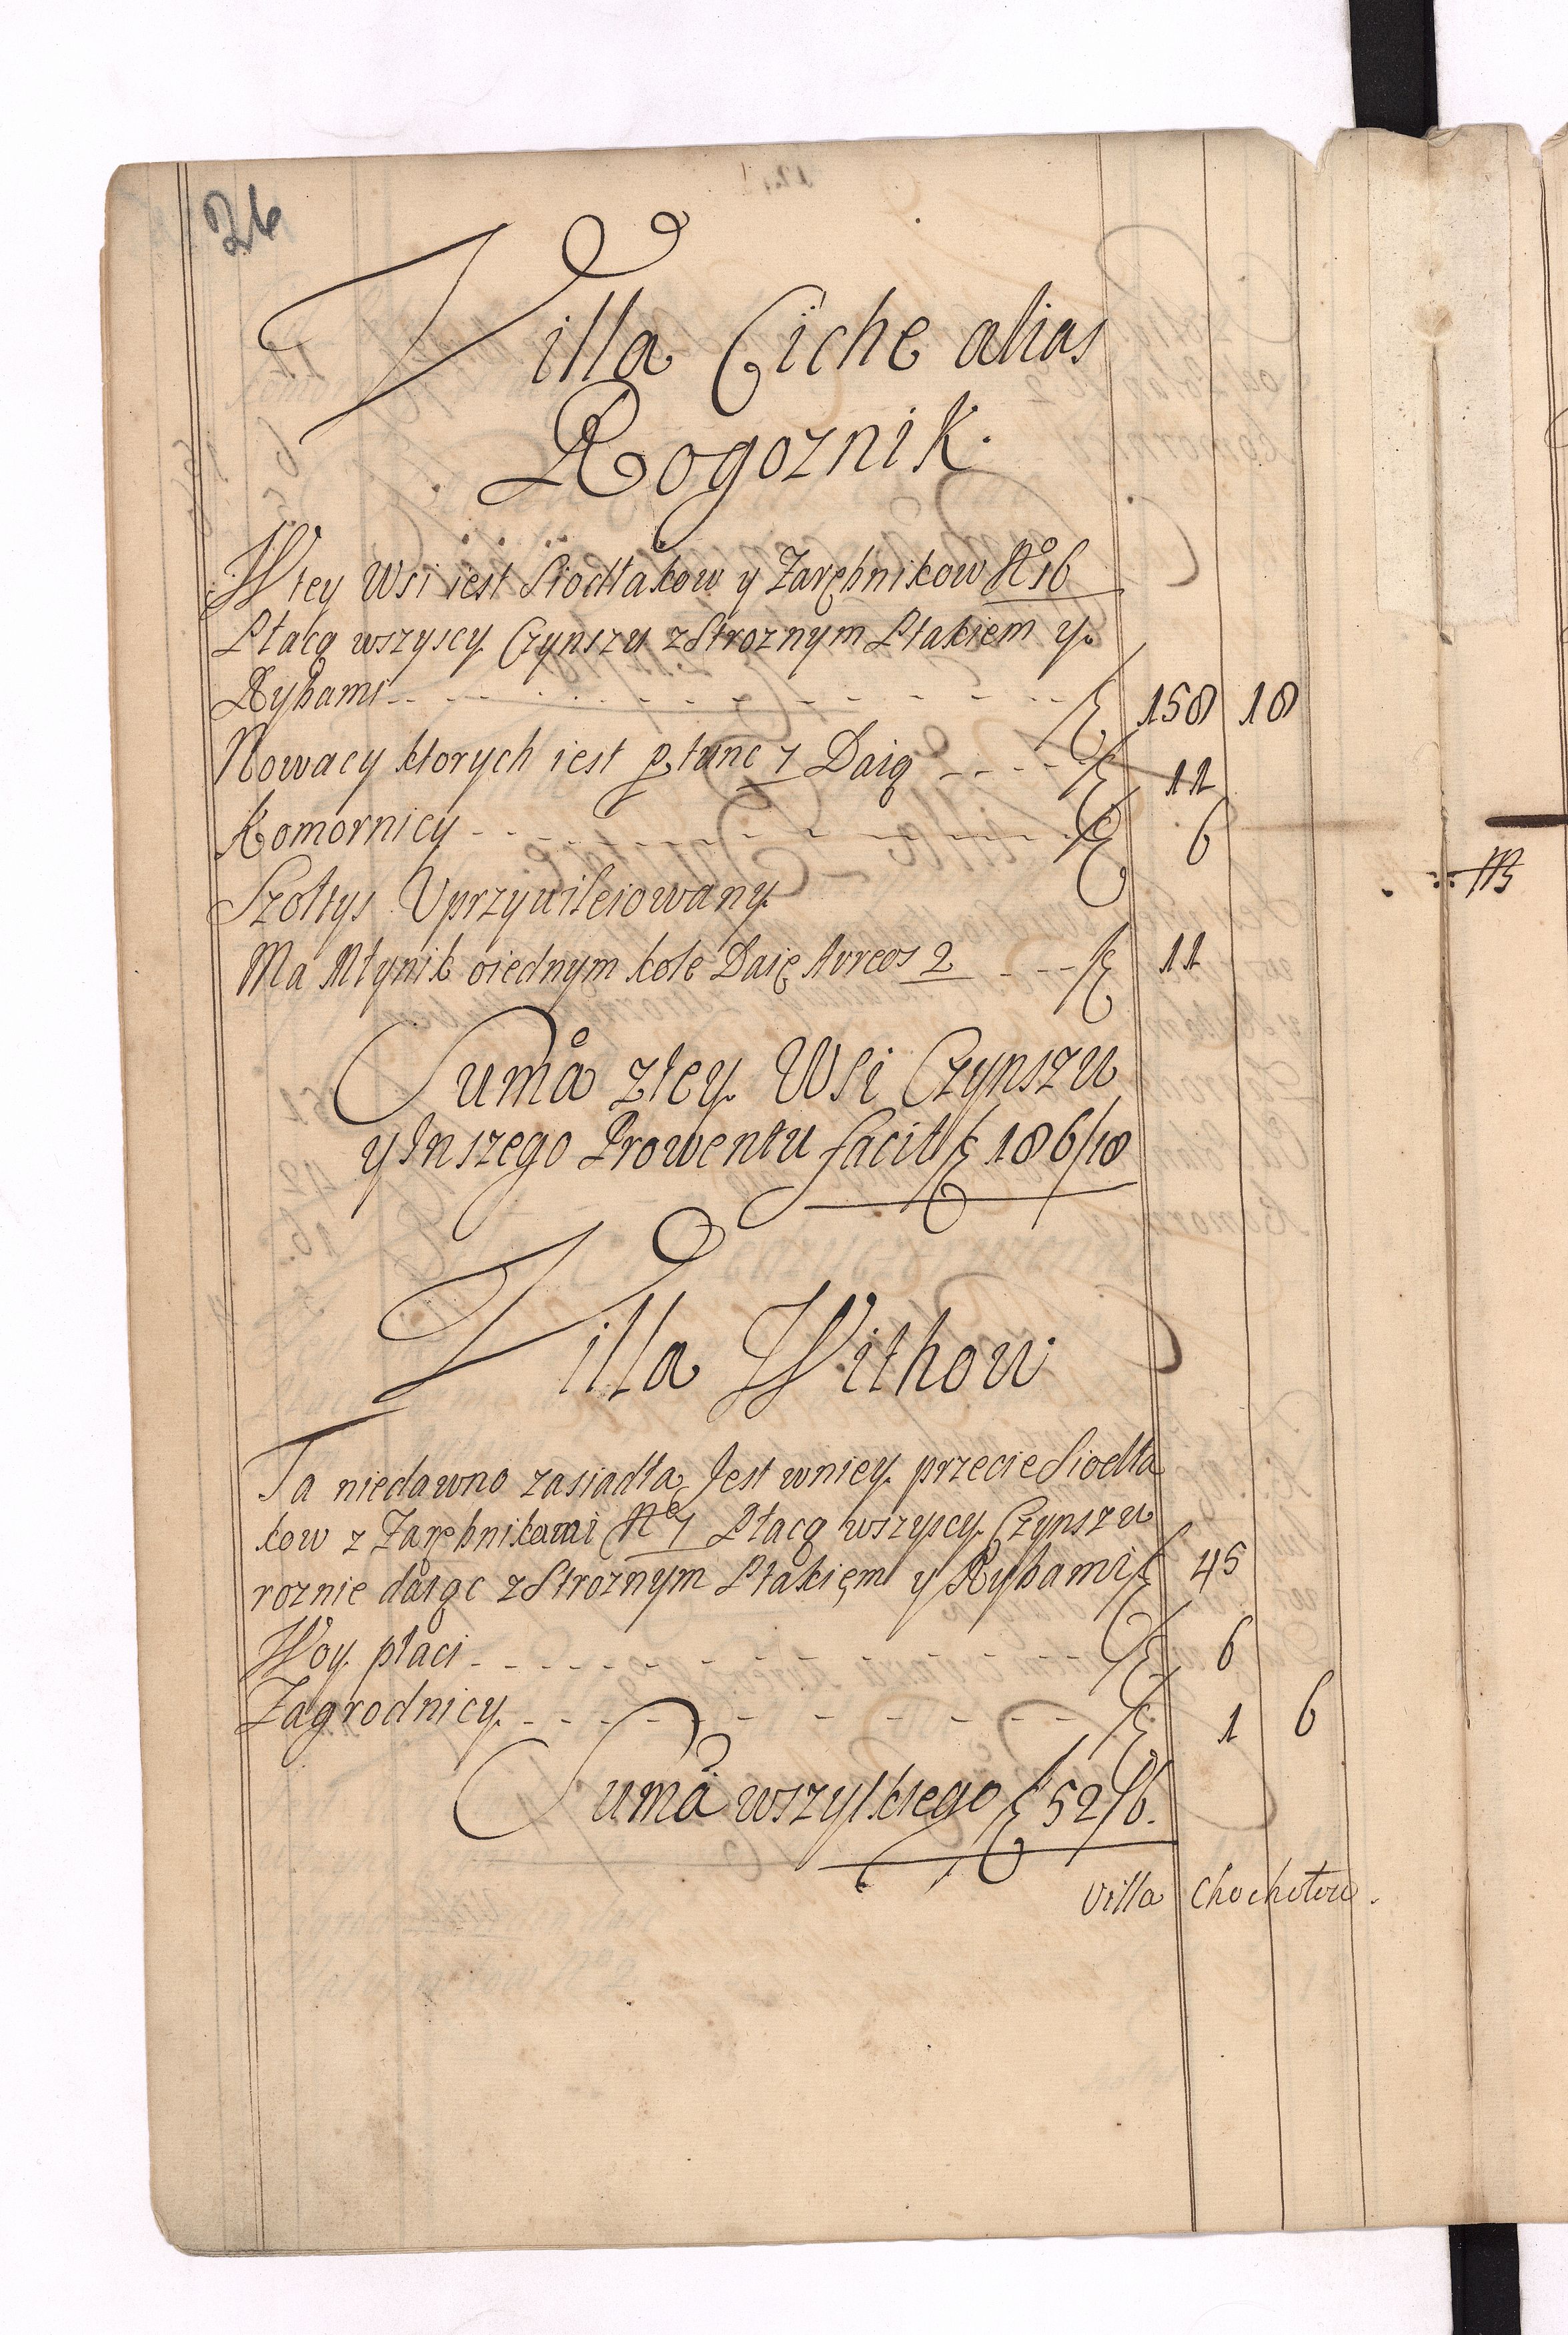 26
Villa Ciche alias
Rogoznik.
W tey Wsi iest Siodłakow y Zarębnikow No 16
Płacą wszyscy Czynszu z Stroznym Ptakiem y
Rybami - - - - - - - - - - f 158 18
Nowacy ktorych iest p tunc 7 Daią - - - - f 11
Komornicy - - - - - - - - - - f 6
Szołtys Uprzywileiowany
Ma Młynik o iednym kole Daię Aureos 2 - - - f 11
Suma z tey Wsi Czynszu
y Inszego Prowentu facit f 186/18
Villa Withow
Ta niedawno zasiadła Jest w niey przecie Siodła
kow z Zarębnikami No 7 Płacą wszyscy Czynszu
roznie daiąc z Stroznym Ptakięm y Rybami f 45
Woy. płaci - - - - - - - - - - f 6
Zagrodnicy - - - - - - - - - - f 1 6
Suma wszystkiego f 52/6.
Villa Chochołow.